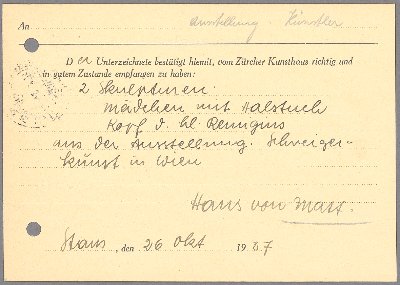 An Ausstellung. Künstler
Der Unterzeichnete bestätigt hiemit, vom Zürcher Kunsthaus richtig und
in gutem Zustande empfangen zu haben:
2 Skulpturen:
Mädchen mit Halstuch
Kopf d. hl. Remigius
aus der Ausstellung: Schweizer-
kunst in Wien
Hans von Matt.
Stans, den 26 Okt 1927